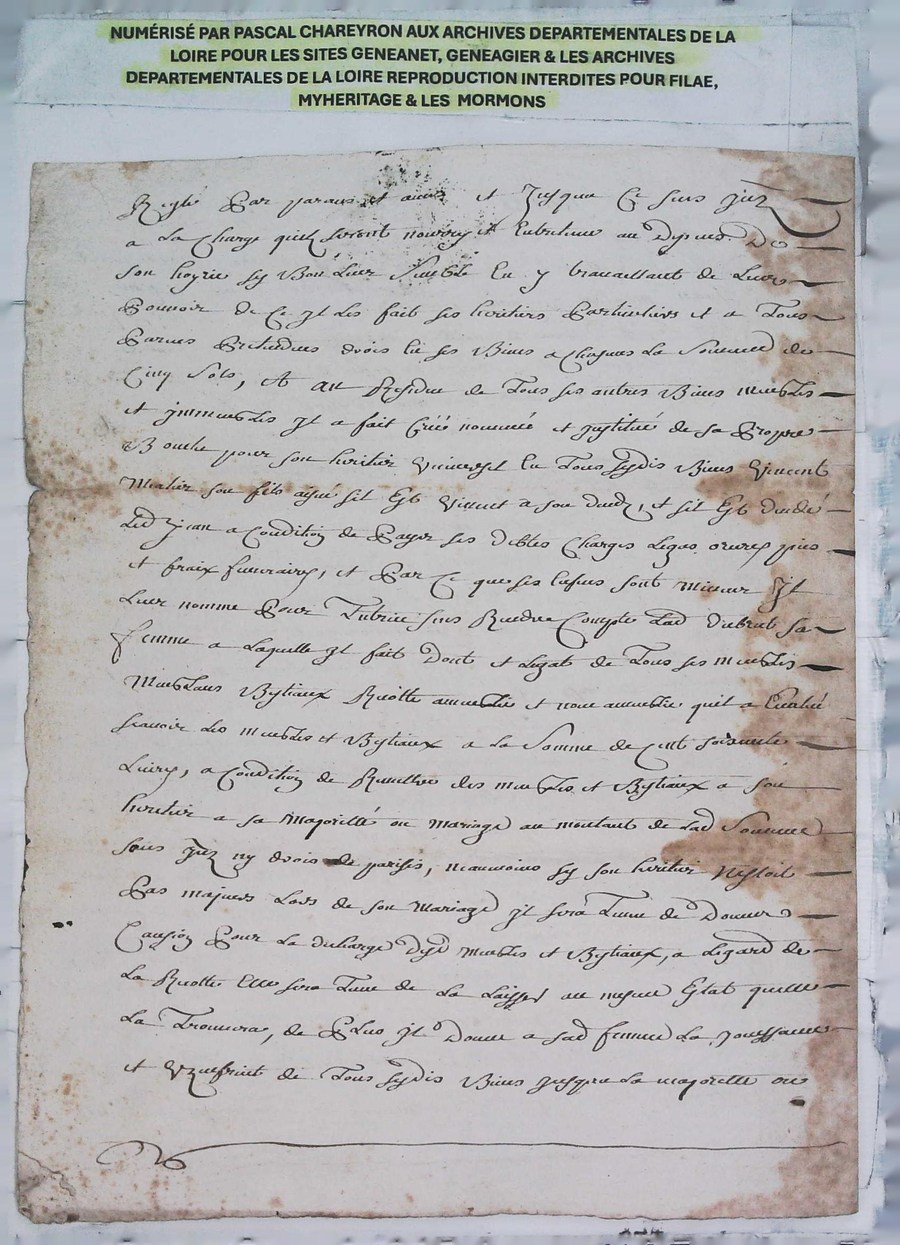 NUMÉRISÉ PAR PASCAL CHAREYRON AUX ARCHIVES DEPARTEMENTALES DE LA
LOIRE POUR LES SITES GENEANET, GENEAGIER & LES ARCHIVES
DEPARTEMENTALES DE LA LOIRE REPRODUCTION INTERDITES POUR FILAE,
MYHERITAGE & LES MORMONS
Reglé Par parans et amis et Jusque Ce sans
a La Charge quilz seront nourris et Entretenu au Depens De
son hoyrie sy Bon Leur Semble En y travaillant de Leur
Pouvoir de Ce Jl Les fait ses heritiers Particuliers et a Tous
Pretendans drois En ses Biens a Chacuns La Somme de
Cinq Sols, Et au Residue de Tous ses autres Biens meubles
et jmmeubles Jl a fait Créé nommé et justitué de sa Propre
Bouche pour son heritier Universel En Tous Sesdis Biens Vincent
son fils aisné sil Est Vivant a son et sil Est
Led Jean a Condition de Payer ses Debtes Charges Legas œuvres pies
et fraix funeraires, et Par Ce que ses Enfans sont Mineur Jl
Leur nomme Pour Tutrice sans Rendre Compte Lad sa
femme a Laquelle Jl fait Dont et Legat de Tous ses meubles
Bestiaux Recolte ameublie et non ameublie quil a Evalué
scavoir Les meubles et Bestiaux a La Somme de Cent soixante
Livres, a Condition de Remettre des meubles et Bestiaux a son
heritier a sa Majorité ou Mariage au montant de Lad Somme
sans ny de parisis, neanmoins sy son heritier Nestoit
Pas majeur Lors de son Mariage jl sera Tenu de Donner
Caution Pour La decharge Desd Meubles et Bestiaux, a Legard de
La Recolte Elle sera Tenue de La Laisser au mesme Estat quelle
La Trouvera, de Plus Jl Donne a sad femme La Jouissance
et Uzufruit de Tous Sesdis Biens jusqua La majorité ou